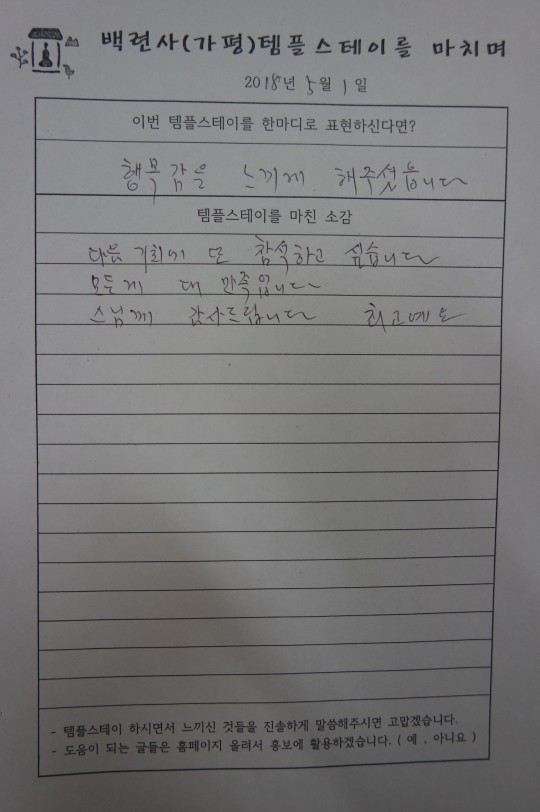 백련사(가평)템플스테이를 마치며
2018년 5월 1일
이번 템플스테이를 한마디로 표현하신다면?
행복감을 느끼게 해주셨읍니다
템플스테이를 마친 소감
다음 기회에 또 참석하고 싶습니다
모두게 대 만족입니다
스님께 감사드립니다 최고예요
- 템플스테이 하시면서 느끼신 것들을 진솔하게 말씀해주시면 고맙겠습니다.
- 도움이 되는 글들은 홈페이지 올려서 홍보에 활용하겠습니다. ( 예 . 아니요 )